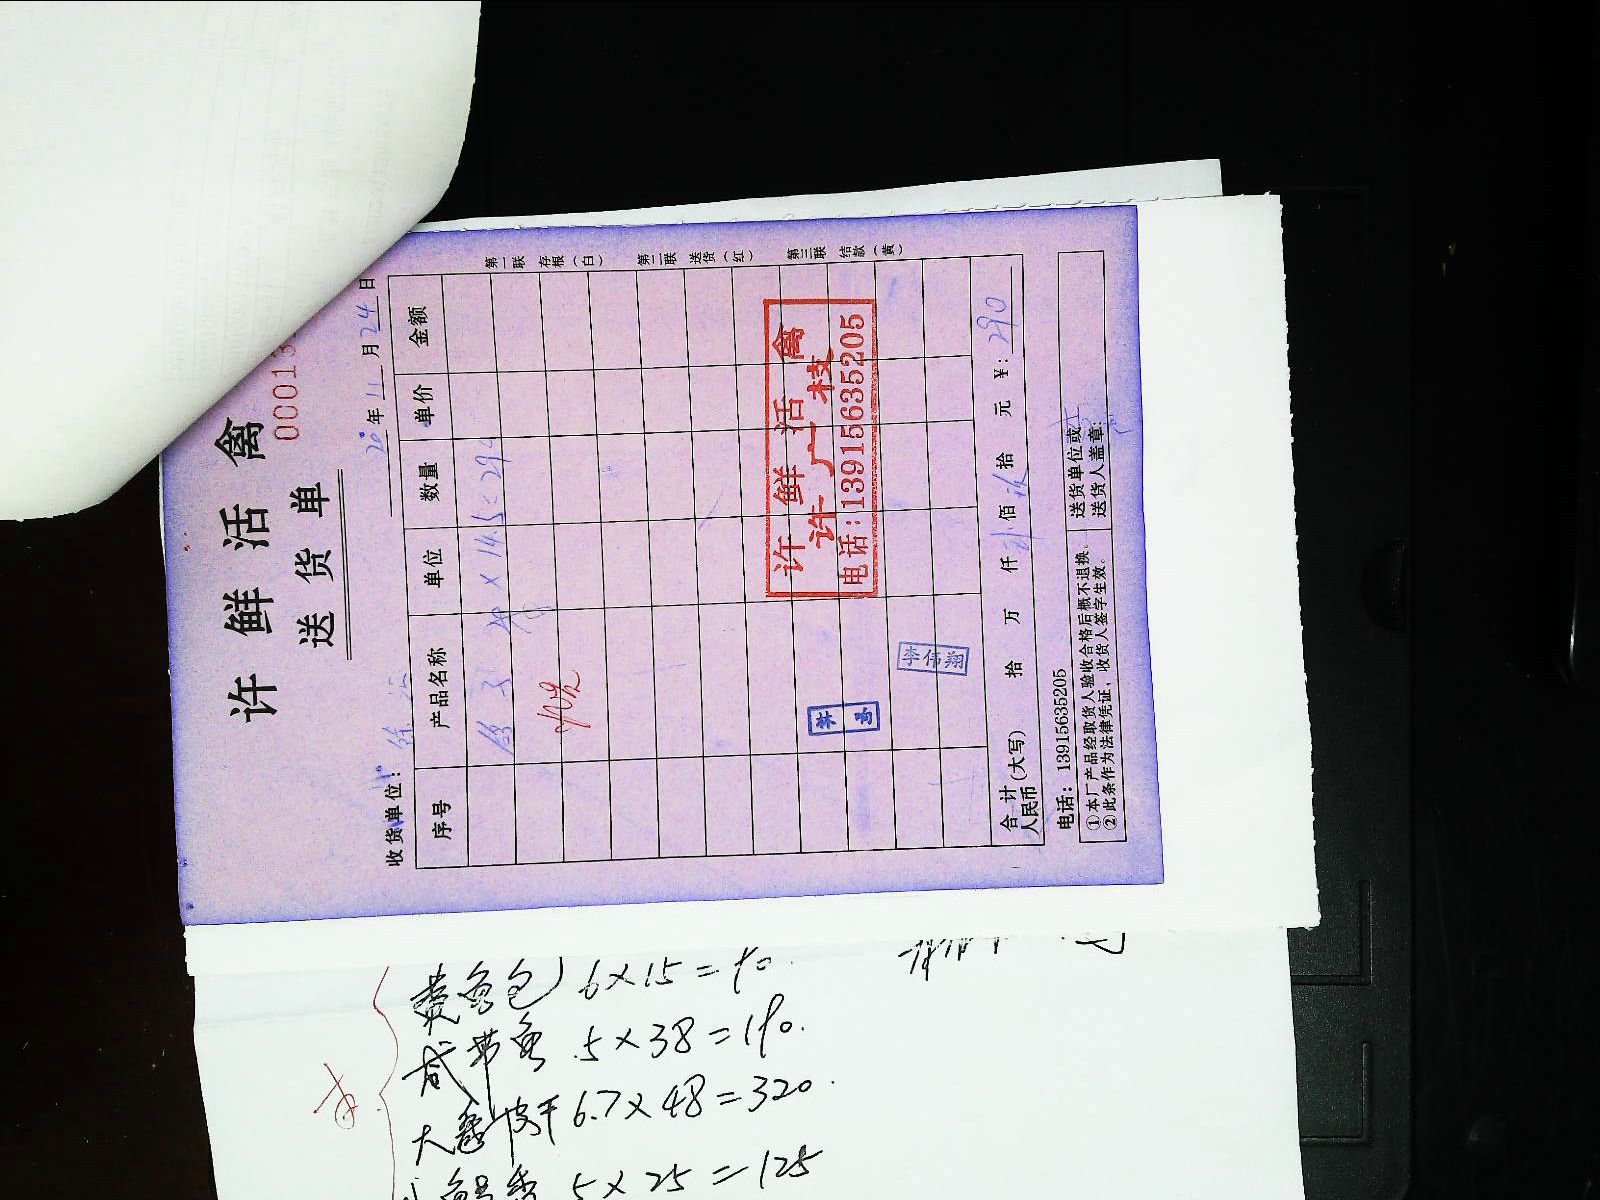 许鲜活禽
00013
送货单
20 年 11 月 24 日
收货单位：
序号 产品名称 单位 数量 单价 金额
× 14.5 = 29
第一联 存根（白） 第二联 送货（红） 第三联 结款（黄）
许鲜活禽
许广枝
电话：13915635205
李伟翔
合计 人民币（大写） 拾 万 仟 佰 拾 元 ￥: 290
电话： 13915635205
①本厂产品经取货人验收合格后概不退换。
②此条作为法律凭证，收货人签字生效。
送货单位或
送货人盖章:
6×15=90.
咸带鱼 5×38=190.
6.7×48=320.
5×25=125